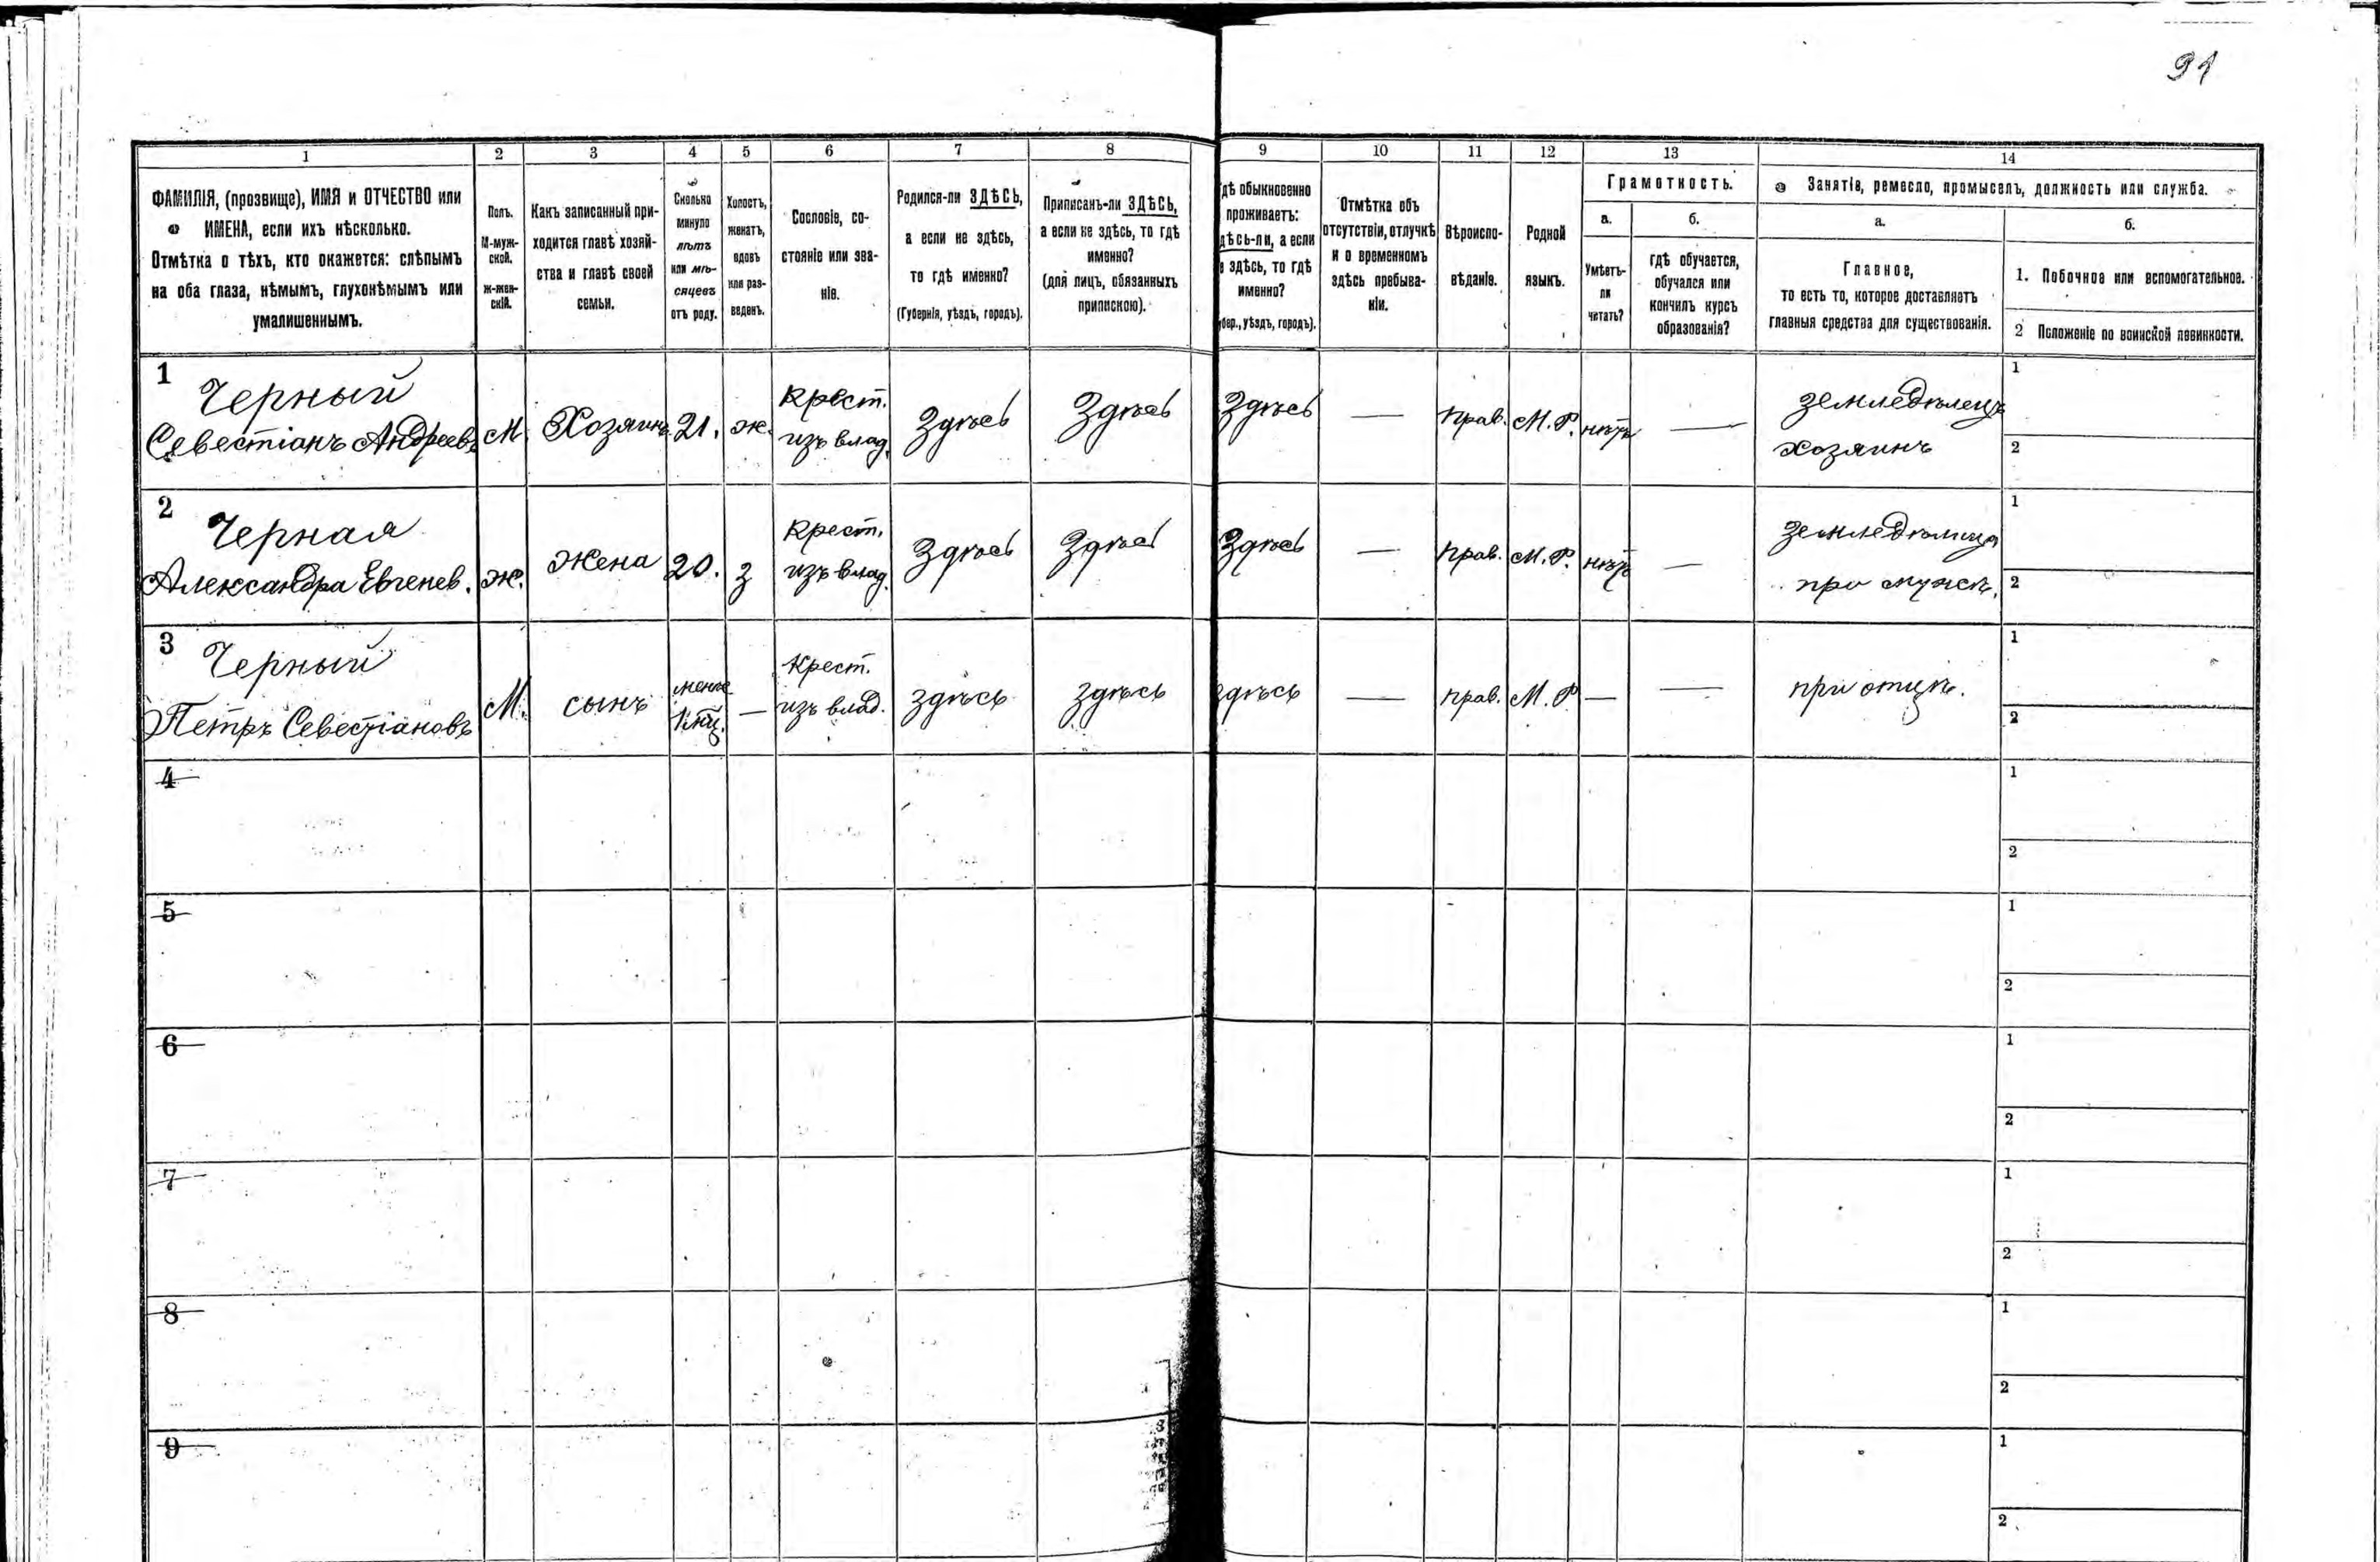 91
1 2 3 4 5 6 7 8 9 10 11 12 13 14
ФАМИЛІЯ, (прозвище), ИМЯ и ОТЧЕСТВО или
ИМЕНА, если ихъ нѣсколько.
Отмѣтка о тѣхъ, кто окажется: слѣпымъ
на оба глаза, нѣмымъ, глухонѣмымъ или
умалишеннымъ.
Полъ.
М-муж-
ской.
Ж-жен-
скій.
Какъ записанный при-
ходится главѣ хозяй-
ства и главѣ своей
семьи.
Сколько
минуло
лѣтъ
или мѣ-
сяцевъ
отъ роду.
Холостъ,
женатъ,
вдовъ
или раз-
веденъ.
Сословіе, со-
стояніе или зва-
ніе.
Родился-ли ЗДѢСЬ,
а если не здѣсь,
то гдѣ именно?
(Губернія, уѣздъ, городъ).
Приписанъ-ли ЗДѢСЬ,
а если не здѣсь, то гдѣ
именно?
(для лицъ, обязанныхъ
припискою).
дѣ обыкновенно
проживаетъ:
дѣсь-ли, а если
е здѣсь, то гдѣ
именно?
убер., уѣздъ, городъ).
Отмѣтка объ
отсутствіи, отлучкѣ
и о временномъ
здѣсь пребыва-
ніи.
Вѣроиспо-
вѣданіе.
Родной
языкъ.
Грамотность.
а.
Умѣетъ-
ли
читать?
б.
гдѣ обучается,
обучался или
кончилъ курсъ
образованія?
Занятіе, ремесло, промыселъ, должность или служба.
а.
Главное,
то есть то, которое доставляетъ
главныя средства для существованія.
б.
1. Побочное или вспомогательное.
2 Положеніе по воинской повинности.
1 Черный
Севестіанъ Андреевъ М. Хозяинъ 21. ж. Крест. изъ влад. Здѣсь Здѣсь Здѣсь — прав. М. Р. нѣтъ — земледѣлецъ 1
хозяинъ 2
2 Черная
Александра Евгенев. ж. жена 20. з Крест. изъ влад. Здѣсь Здѣсь Здѣсь — прав. М. Р. нѣтъ — земледѣлица 1
при мужѣ. 2
3 Черный
Петръ Севестіановъ М. сынъ менѣе 1 мц. — Крест. изъ влад. здѣсь здѣсь здѣсь — прав. М. Р — — при отцѣ. 1
2
4 1
2
5 1
2
6 1
2
7 1
2
8 1
2
9 1
2